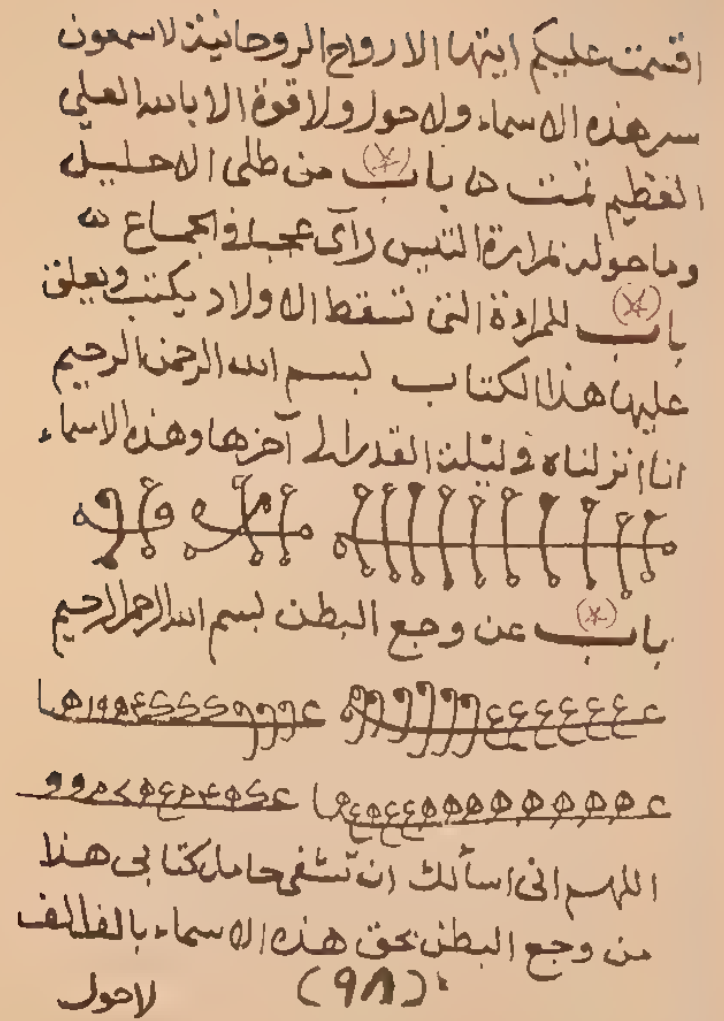 اقسمت عليكم ايتها الارواح الروحانية لاسمعون
سر هذه الاسماء ولاحول ولاقوة الا بالله العلي
العظيم تمت ه باب من طلى الاحليل
وماحوله بمرارة التيس رآى عجبا في الجماع ه
باب للمراة التى تسقط الاولاد يكتب ويعلق
عليها هذا الكتاب بسم الله الرحمن الرحيم
انا انزلناه في ليلة القدر الى آخرها وهذه الاسماء
باب عن وجع البطن بسم الله الرحمن الرحيم
اللهم انى اسألك ان تشفى حامل كتابى هذا
من وجع البطن بحق هذه الاسماء
(٩٨)
لاحول